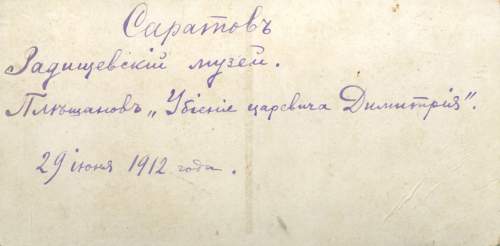 Саратовъ
Задищевскій музей.
Плѣшановъ „Убіеніе царевича Димитрія".
29 іюня 1912 года.